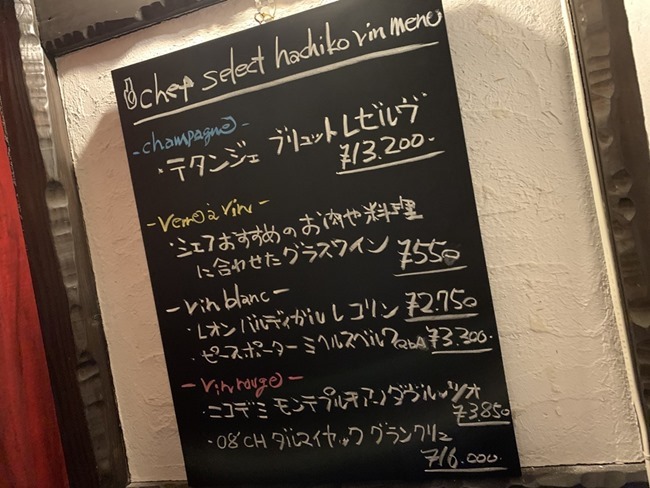 chef select hachiko vin menu
-champagne-
・テタンジェ ブリュット Lゼルヴ
¥13.200-
-Verre à vin-
・シェフおすすめのお肉や料理
に合わせたグラスワイン ¥550
-vin blanc-
・Lオン バルディガル L コリン ¥2.750
・ピースポーター ミヘルスベルク QbA ¥3.300-
-vin rouge-
・ニコデミ モンテプルチアーノ ダブルッツオ
¥3.850
・08'CH ダルマイヤック グランクリュ
¥16.000-